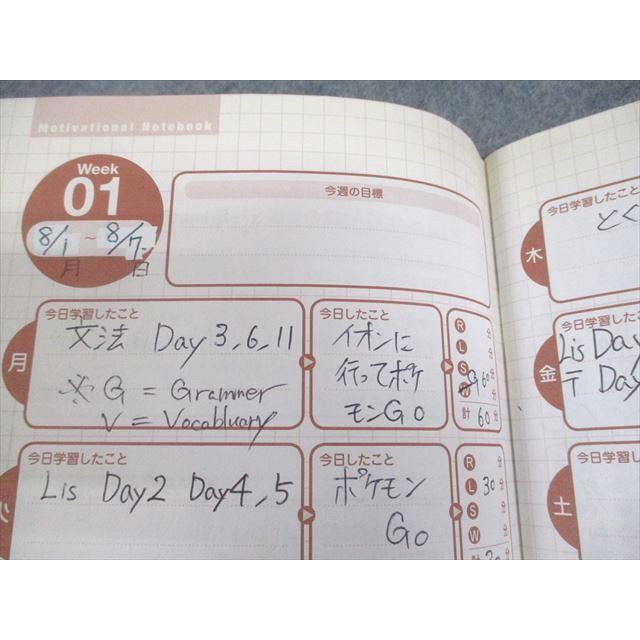 Motivational Notebook
Week
01
8/1 ~ 8/7
月 日
今週の目標
月
今日学習したこと
文法 Day 3,6,11
※ G = Grammer
V = Vocabluary
今日したこと
イオンに
行ってポケ
モンGO
R 分
L 分
S 分
G 60 分
計 60 分
今日学習したこと
Lis Day2 Day4,5
今日したこと
ポケモン
Go
R 分
L 30 分
S 分
W 分
木
今日学習したこと
とく
金
今日学習したこ
Lis Day
〒 Day
土
今日学習し